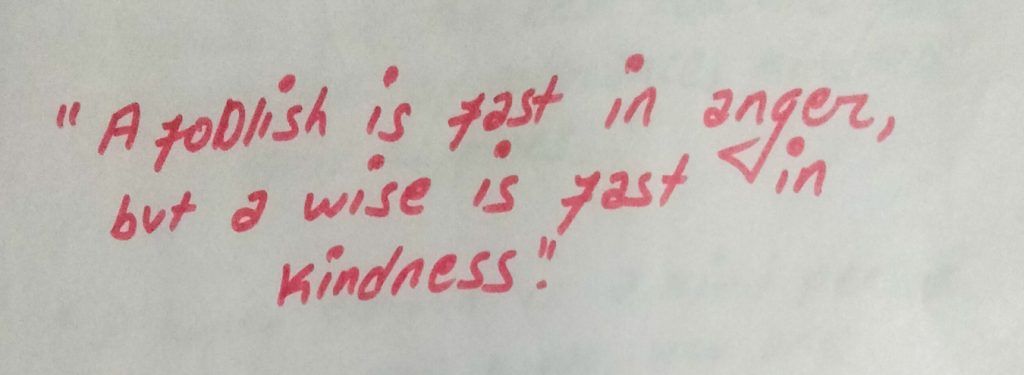 "A foolish is fast in anger,
but a wise is fast in
kindness".